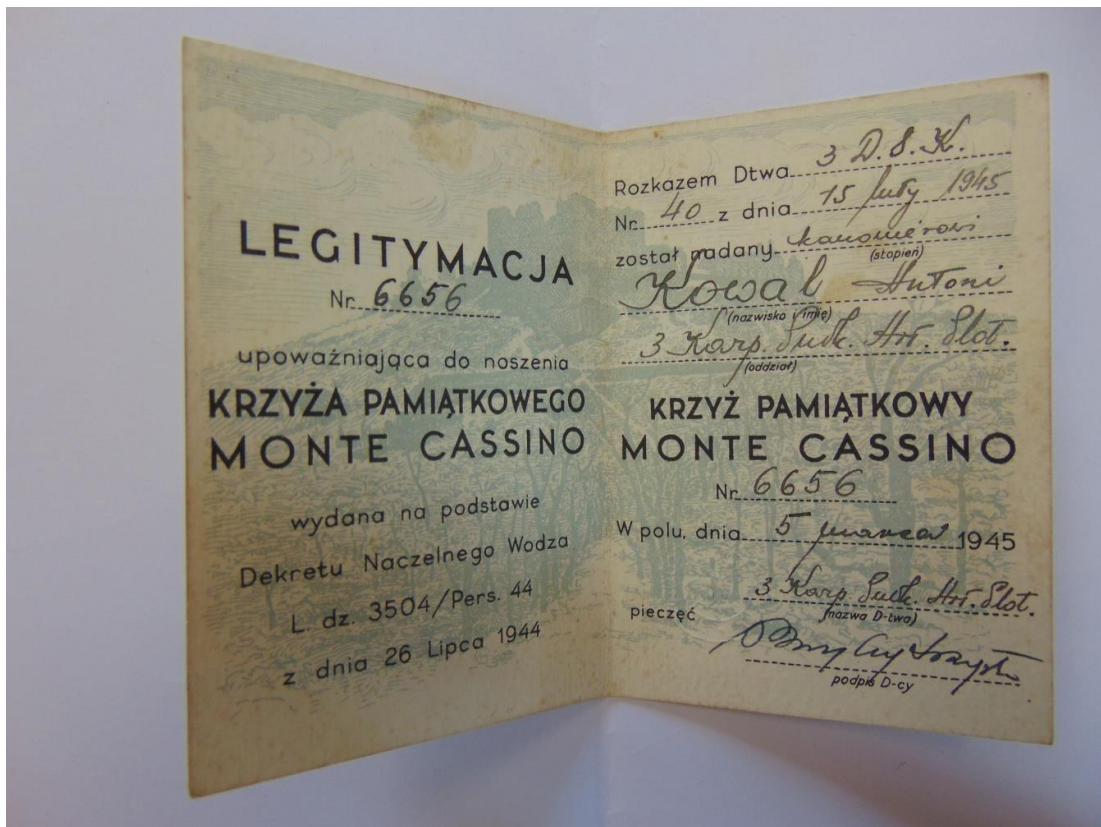 LEGITYMACJA
Nr. 6656
upoważniająca do noszenia
KRZYŻA PAMIĄTKOWEGO
MONTE CASSINO
wydana na podstawie
Dekretu Naczelnego Wodza
L. dz. 3504/Pers. 44
z dnia 26 Lipca 1944
Rozkazem Dtwa 3 D.S.K.
Nr. 40 z dnia 15 luty 1945
został nadany kanonierowi
(stopień)
Kowal Antoni
(nazwisko i imię)
3 Karp. Art. Plot.
(oddział)
KRZYŻ PAMIĄTKOWY
MONTE CASSINO
Nr. 6656
W polu, dnia 5 marca 1945
3 Karp. Art. Plot.
(nazwa D-twa)
pieczęć
podpis D-cy